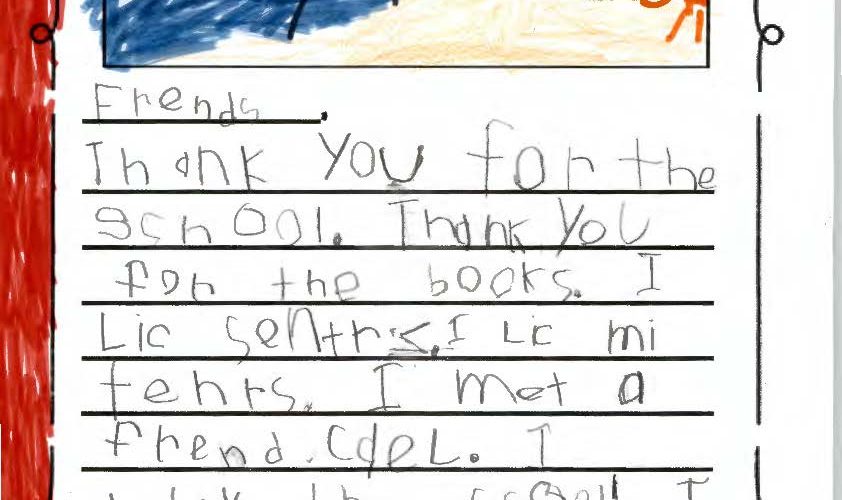 Frends.
Thank you for the
school. Thank you
for the books. I
Lic sentrs. I Lic mi
fenrs. I met a
frend. CdeL. I